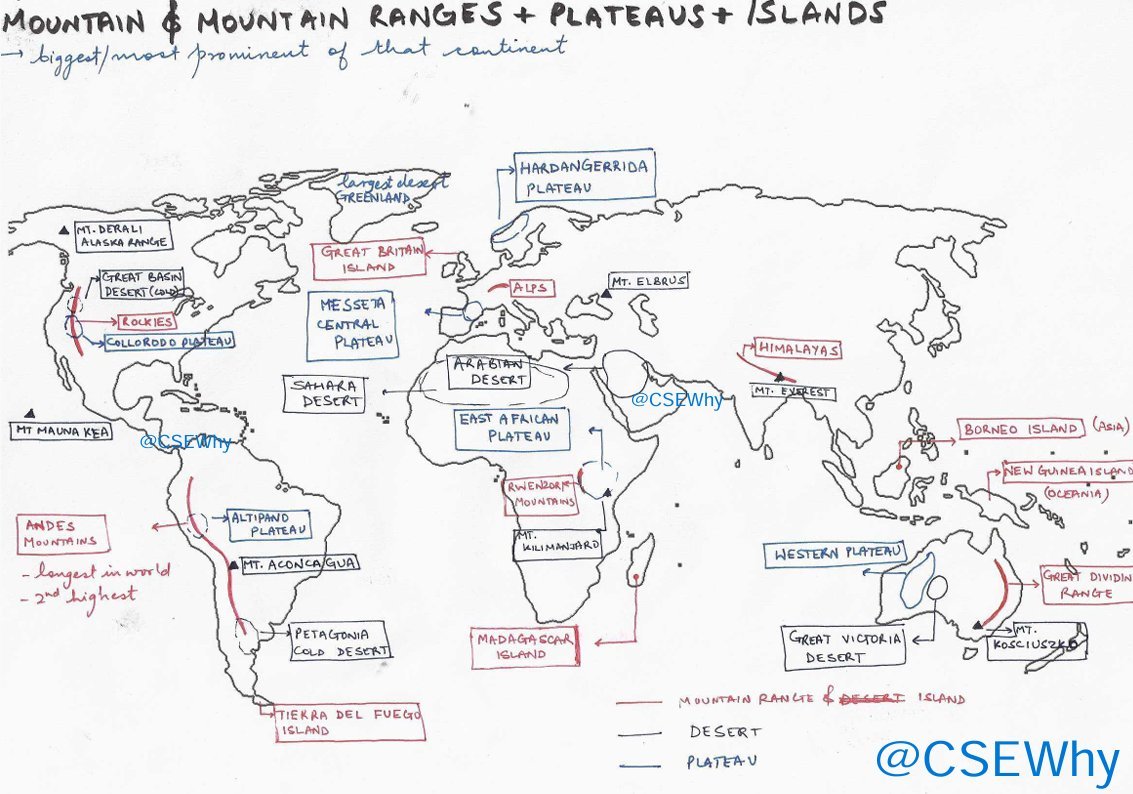 MOUNTAIN & MOUNTAIN RANGES + PLATEAUS + ISLANDS
→ biggest/most prominent of that continent
HARDANGERRIDA
PLATEAU
largest desert
GREENLAND
MT. DERALI
ALASKA RANGE
GREAT BRITAIN
ISLAND
GREAT BASIN
DESERT (COLD)
ALPS
MT. ELBRUS
MESSETA
CENTRAL
PLATEAU
ROCKIES
COLLORODO PLATEAU
HIMALAYAS
ARABIAN
DESERT
SAHARA
DESERT
MT. EVEREST
@CSEWhy
EAST AFRICAN
PLATEAU
MT MAUNA KEA
@CSEWhy
BORNEO ISLAND (ASIA)
NEW GUINEA ISLAND
(OCEANIA)
RWENZORI
MOUNTAINS
ANDES
MOUNTAINS
- longest in world
- 2nd highest
ALTIPANO
PLATEAU
MT.
KILIMANJARO
WESTERN PLATEAU
MT. ACONCAGUA
GREAT DIVIDIN
RANGE
PETAGTONIA
COLD DESERT
MADAGASCAR
ISLAND
GREAT VICTORIA
DESERT
MT.
KOSCIUSZKO
TIERRA DEL FUEGO
ISLAND
MOUNTAIN RANGE & DESERT ISLAND
DESERT
PLATEAU
@CSEWhy